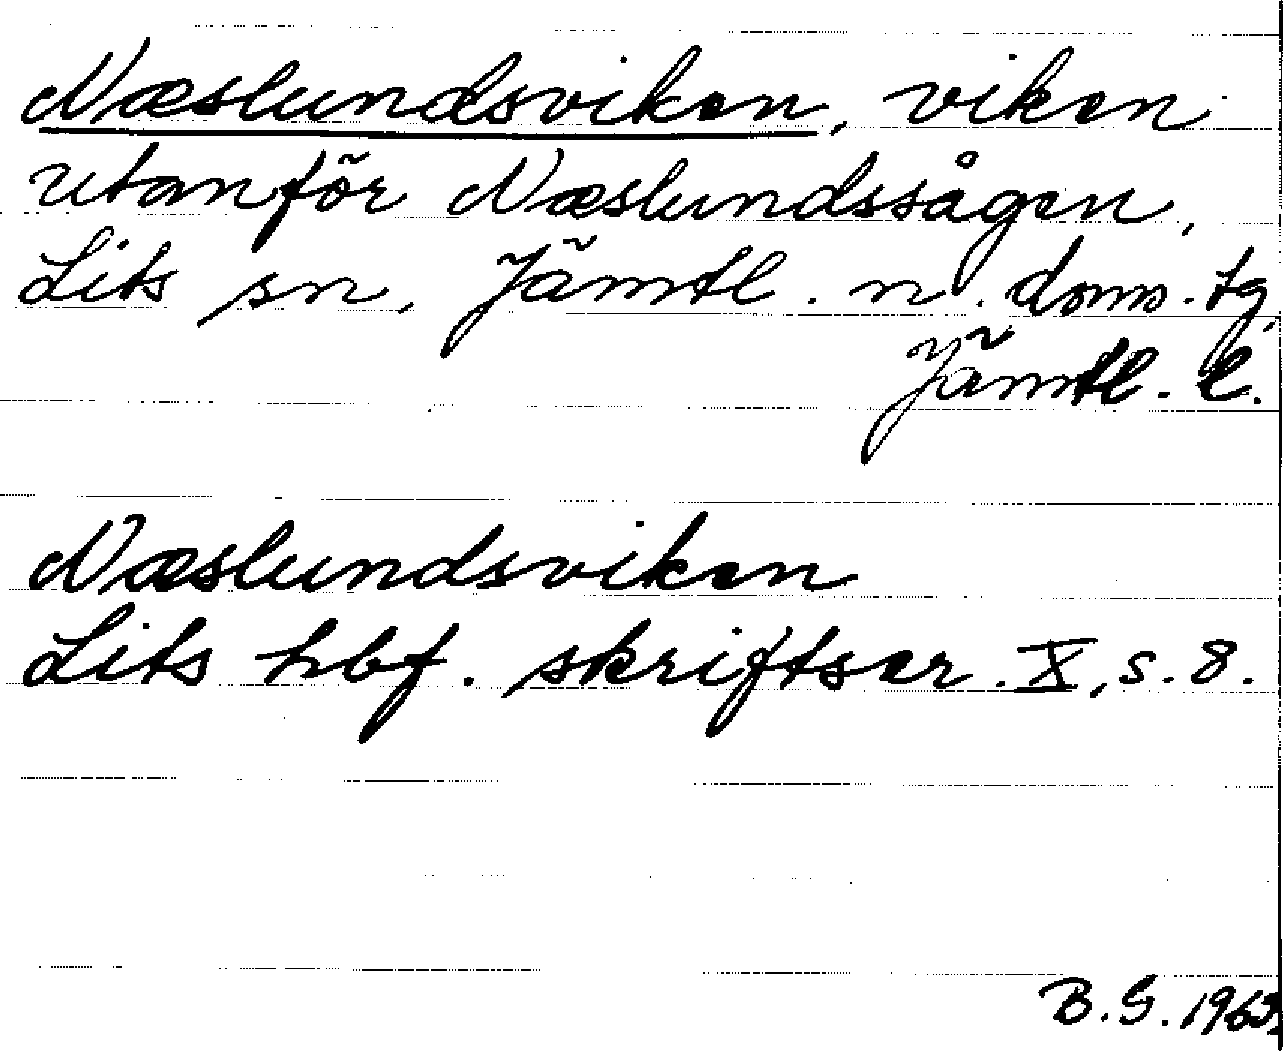 Næslundsviken, viken
utanför Næslundssågen,
Lits sn, Jämtl. n. doms. tg,
Jämtl. l.
Næslundsviken
Lits hbf. skriftser. X, s. 8.
B.G. 1963